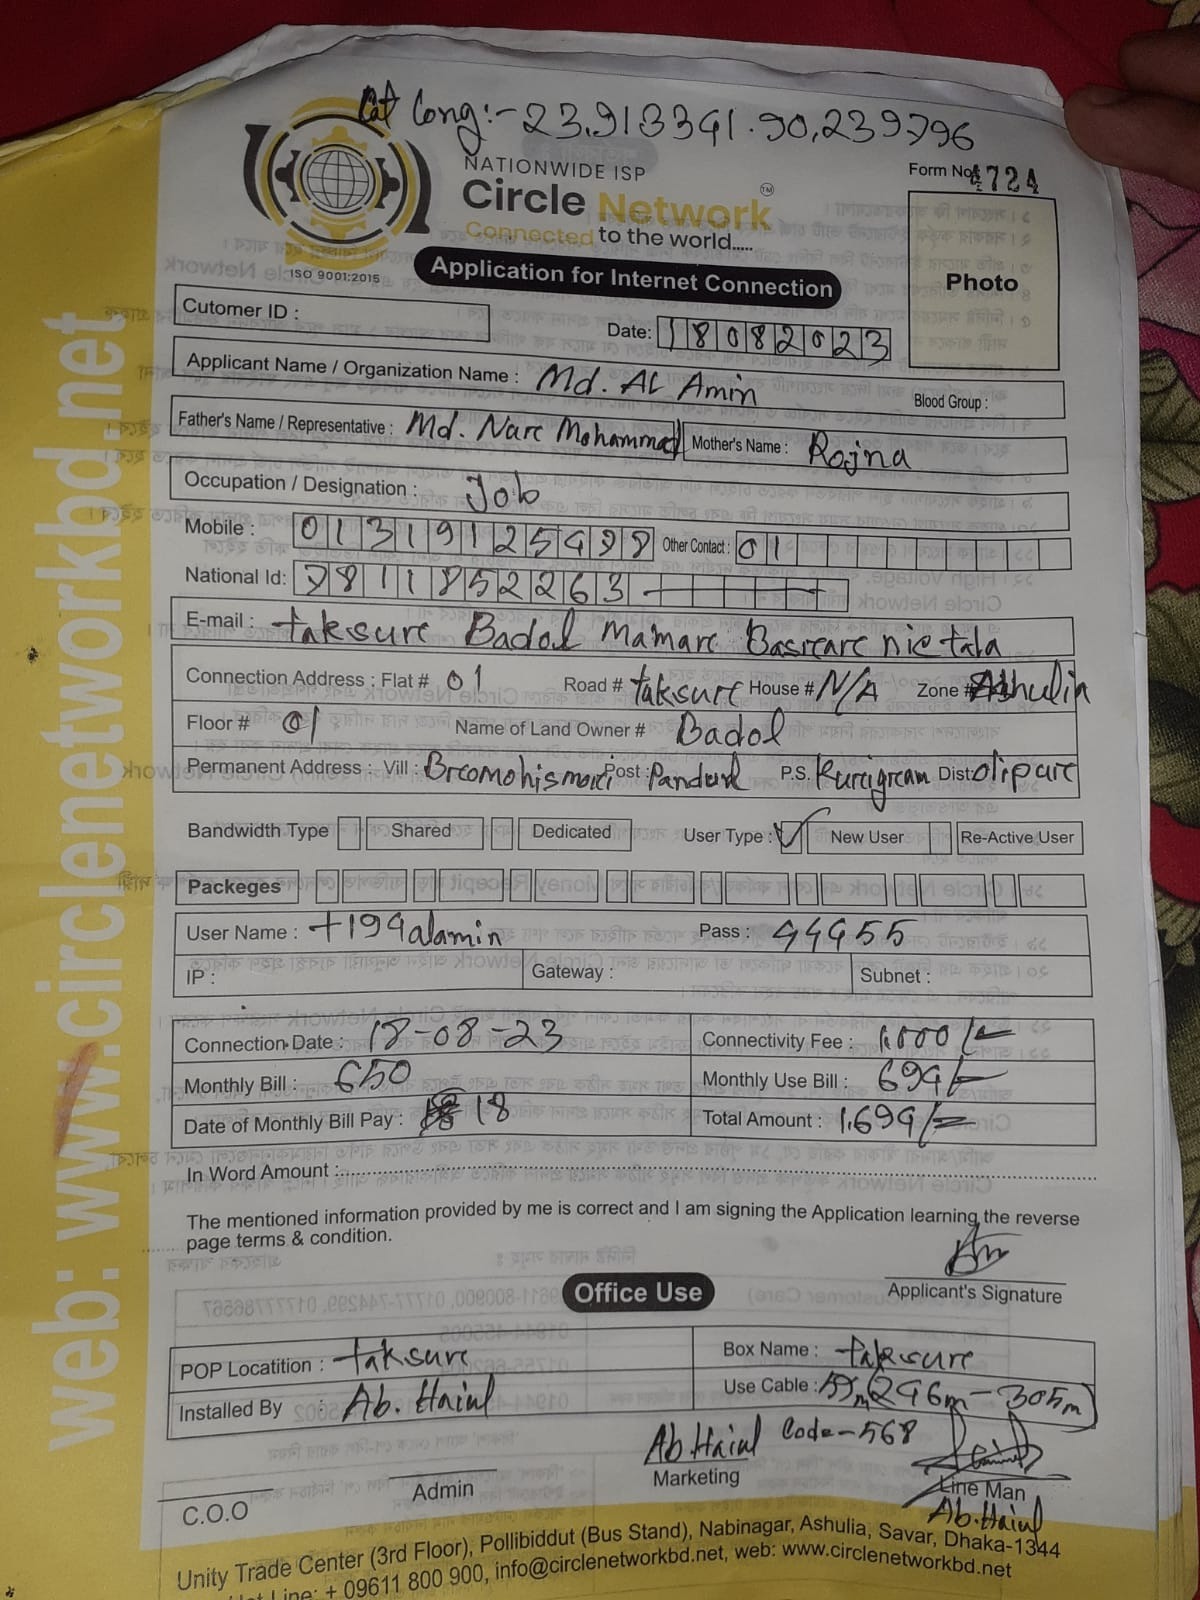 Lat Long:- 23.913341. 90.239796
NATIONWIDE ISP
Form No: 4724
Circle Network TM
Connected to the world.....
ISO 9001:2015
Application for Internet Connection
Photo
Cutomer ID :
Date: 18082023
Applicant Name / Organization Name : Md. AL Amin
Blood Group :
Father's Name / Representative : Md. Nare Mohammad Mother's Name : Rojna
Occupation / Designation : Job
Mobile : 01319125498 Other Contact : 01
National Id: 7811852263
E-mail : taksure Badol Mamare Basreare nic tala
Connection Address : Flat # 01 Road # taksure House # N/A Zone # Ashulia
Floor # 01 Name of Land Owner # Badol
Permanent Address : Vill : Post : Pandul P.S. Kurigram Dist olipure
Bandwidth Type Shared Dedicated User Type : ✓ New User Re-Active User
Packeges
User Name : t194alamin Pass : 44455
IP : Gateway : Subnet :
Connection Date : 18-08-23 Connectivity Fee : 1.000/=
Monthly Bill : 650 Monthly Use Bill : 694/=
Date of Monthly Bill Pay : 18 Total Amount : 1.694/=
In Word Amount :
The mentioned information provided by me is correct and I am signing the Application learning the reverse
page terms & condition.
Applicant's Signature
Office Use
POP Locatition : taksure Box Name : taksure
Installed By : Ab. Haiul Use Cable : (246m - 305m)
Ab Haiul Code-568
C.O.O Admin Marketing Line Man
Ab. Haiul
Unity Trade Center (3rd Floor), Pollibiddut (Bus Stand), Nabinagar, Ashulia, Savar, Dhaka-1344
Line: + 09611 800 900, info@circlenetworkbd.net, web: www.circlenetworkbd.net
web: www.circlenetworkbd.net